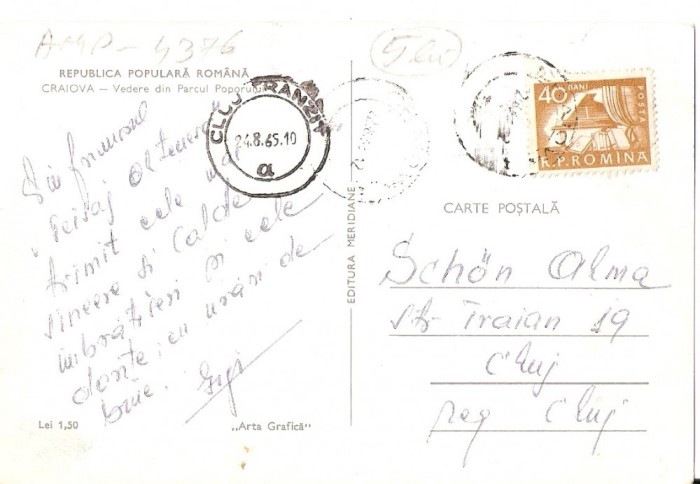 AMP-4376
5 lei
REPUBLICA POPULARĂ ROMÂNĂ
CRAIOVA — Vedere din Parcul Poporului
CLUJ TRANZIT
24.8.65.10
a
40 BANI
POSTA
R.P.ROMINA
Din frumosul
"Peisaj Oltenesc"
trimit cele mai
sincere si calde
îmbrățișeri și cele
dorite, cu urări de
bine. Gigi
Lei 1,50
„Arta Grafică"
EDITURA MERIDIANE
CARTE POȘTALĂ
Schön Alma
str Traian 19
Cluj
reg Cluj